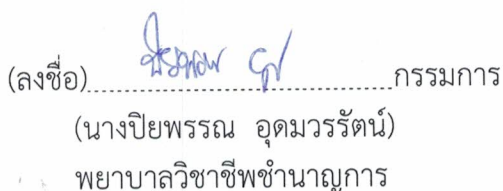 (ลงชื่อ)........................................กรรมการ
(นางปิยพรรณ อุดมวรรัตน์)
พยาบาลวิชาชีพชำนาญการ